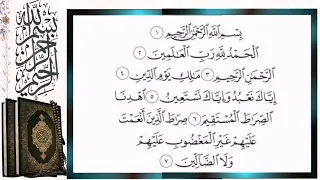 بِسْمِ اللَّهِ الرَّحْمَٰنِ الرَّحِيمِ ١
الْحَمْدُ لِلَّهِ رَبِّ الْعَالَمِينَ ٢
الرَّحْمَٰنِ الرَّحِيمِ ٣ مَالِكِ يَوْمِ الدِّينِ ٤
إِيَّاكَ نَعْبُدُ وَإِيَّاكَ نَسْتَعِينُ ٥ اهْدِنَا
الصِّرَاطَ الْمُسْتَقِيمَ ٦ صِرَاطَ الَّذِينَ أَنْعَمْتَ
عَلَيْهِمْ غَيْرِ الْمَغْضُوبِ عَلَيْهِمْ
وَلَا الضَّالِّينَ ٧
بسم الله الرحمن الرحيم